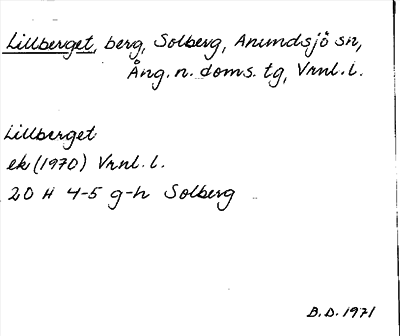 Lillberget, berg, Solberg, Anundsjö sn,
Ång. n. doms. tg, Vrnl. l.
Lillberget
ek (1970) Vrnl. l.
20 H 4-5 g-h Solberg
B.D. 1971